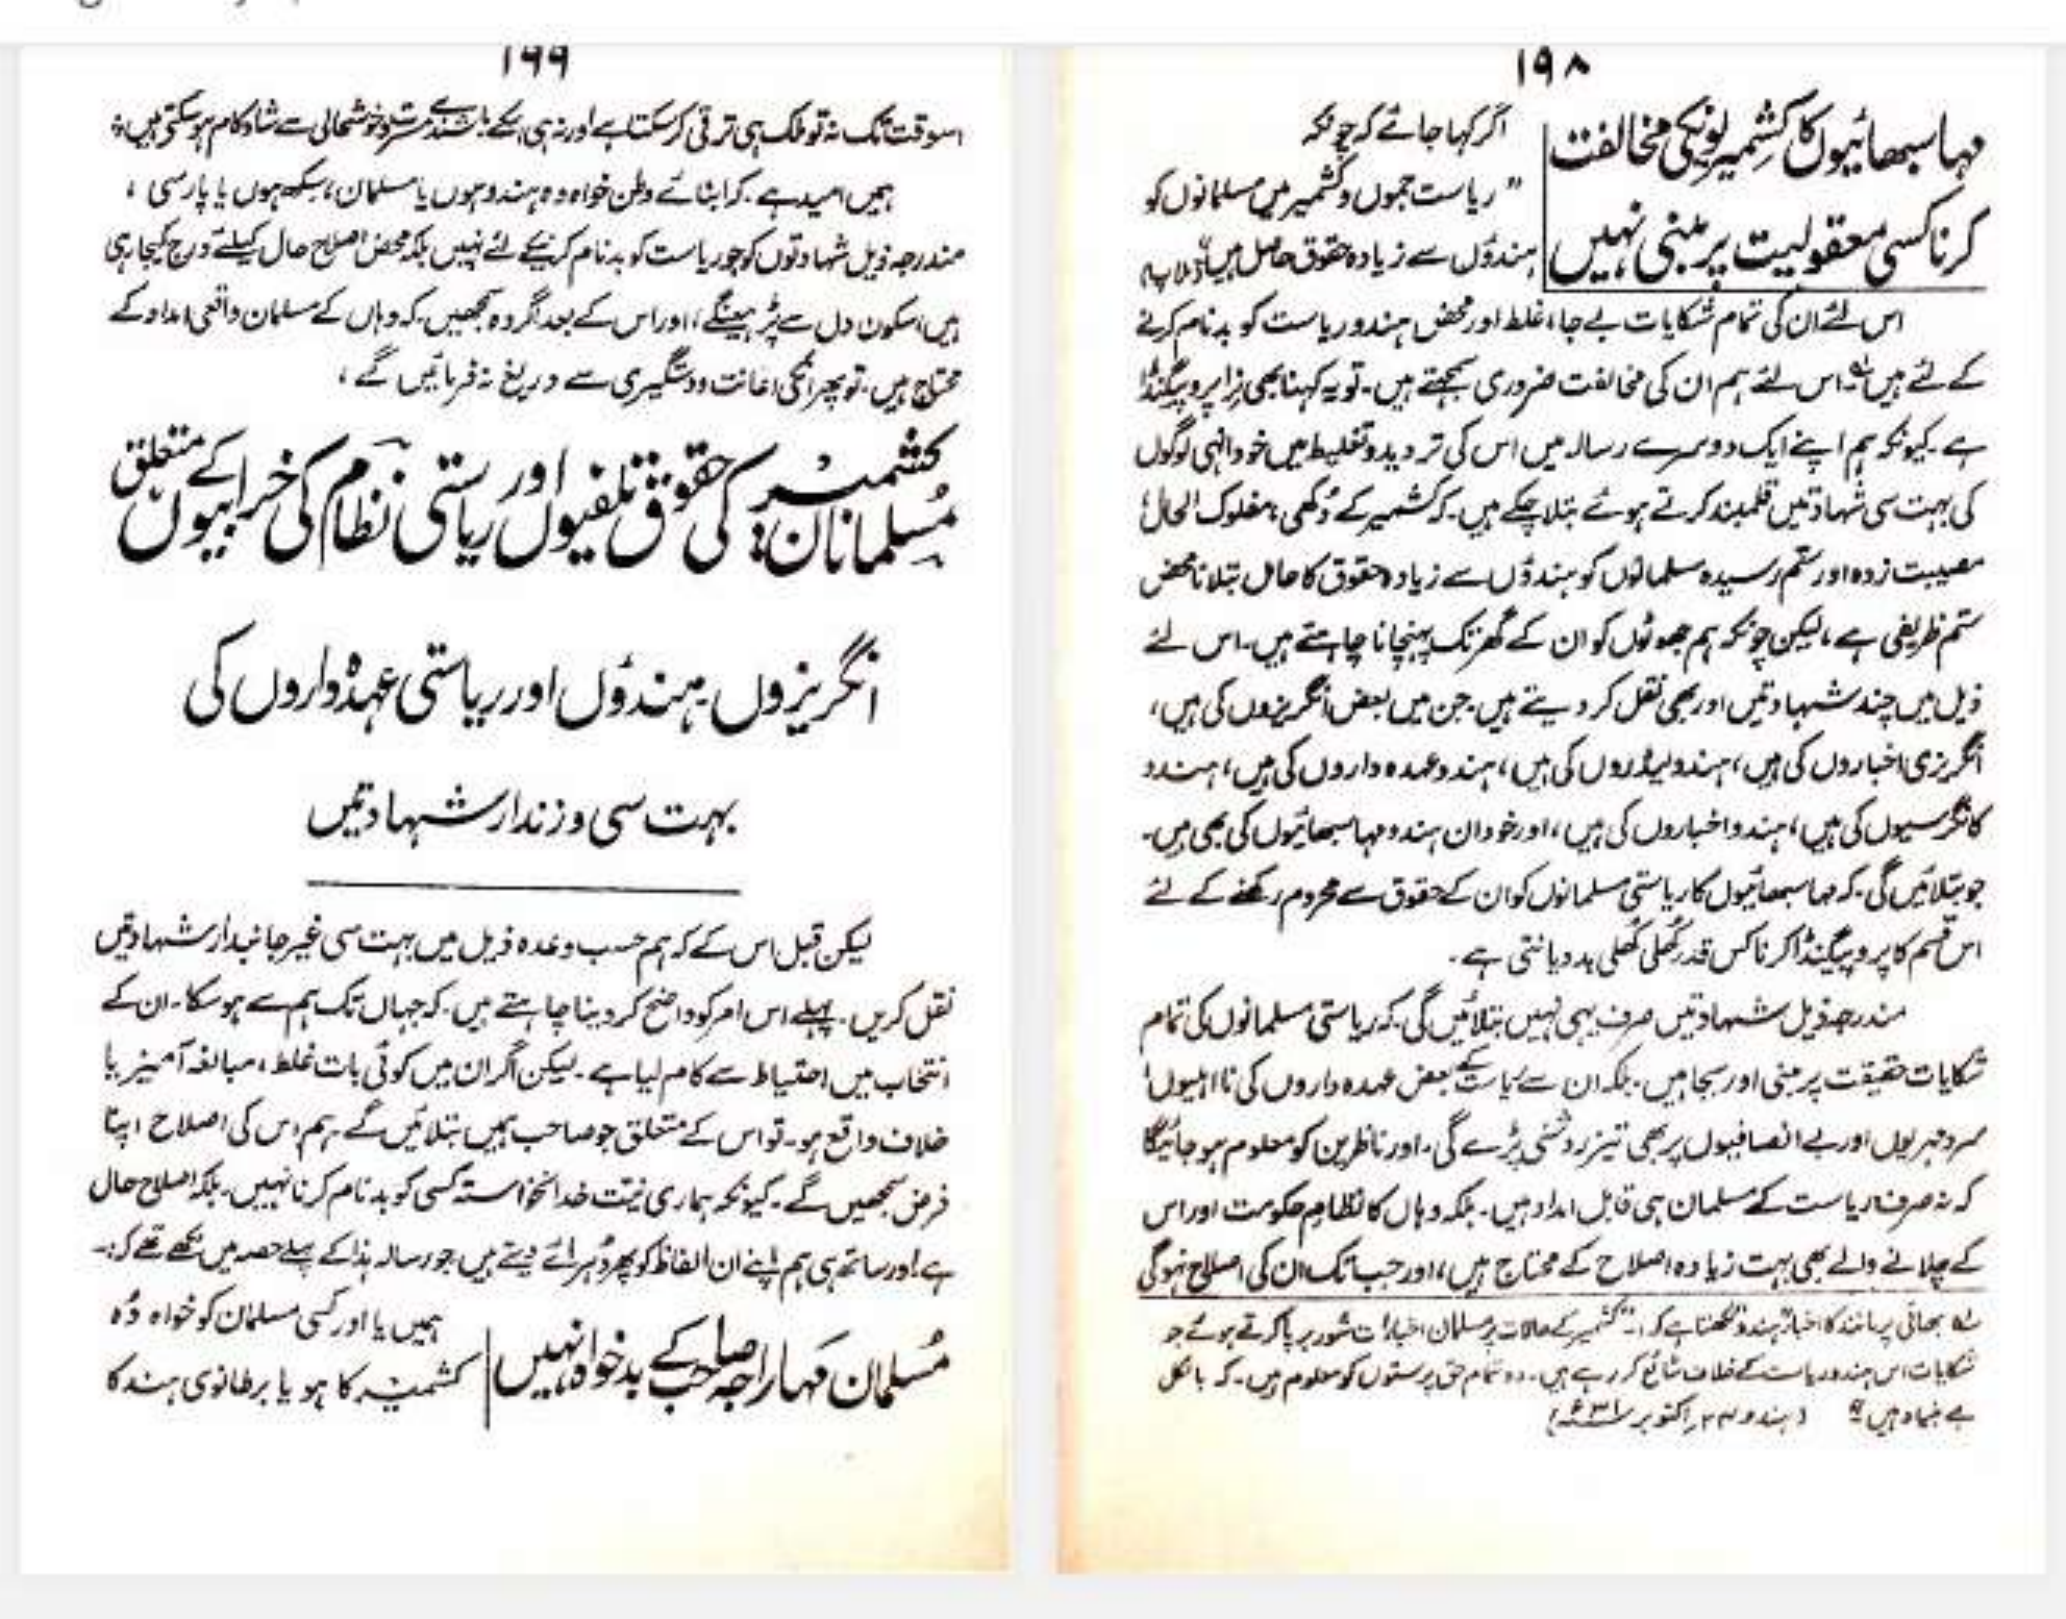 ۱۹۸
مہاسبھائیوں کا کشمیریونکی مخالفت
کرنا کسی معقولیت پر مبنی نہیں
اگر کہا جائے کہ چونکہ
" ریاست جموں و کشمیر میں مسلمانوں کو
ہندوؤں سے زیادہ حقوق حاصل ہیں" (ملاپ)
اس لئے ان کی تمام شکایات بے جا، غلط اور محض ہندو ریاست کو بدنام کرنے
کے لئے ہیں۔ اس لئے ہم ان کی مخالفت ضروری سمجھتے ہیں۔ تو یہ کہنا بھی نرا پروپیگنڈا
ہے۔ کیونکہ ہم اپنے ایک دوسرے رسالہ میں اس کی تردید و تغلیط میں خود انہی لوگوں
کی بہت سی شہادتیں قلمبند کرتے ہوئے بتلا چکے ہیں۔ کہ کشمیر کے دُکھی، مفلوک الحال،
مصیبت زدہ اور ستم رسیدہ مسلمانوں کو ہندوؤں سے زیادہ حقوق کا حامل بتلانا محض
ستم ظریفی ہے، لیکن چونکہ ہم جھوٹوں کو ان کے گھر تک پہنچانا چاہتے ہیں۔ اس لئے
ذیل میں چند شہادتیں اور بھی نقل کر دیتے ہیں۔ جن میں بعض انگریزوں کی ہیں،
انگریزی اخباروں کی ہیں، ہندو لیڈروں کی ہیں، ہندو عہدہ داروں کی ہیں، ہندو
کانگرسیوں کی ہیں، ہندو اخباروں کی ہیں، اور خود ان ہندو مہاسبھائیوں کی بھی ہیں۔
جو بتلائیں گی۔ کہ مہاسبھائیوں کا ریاستی مسلمانوں کو ان کے حقوق سے محروم رکھنے کے لئے
اس قسم کا پروپیگنڈا کرنا کس قدر کُھلی کُھلی بددیانتی ہے۔
مندرجہ ذیل شہادتیں صرف یہی نہیں بتلائیں گی۔ کہ ریاستی مسلمانوں کی تمام
شکایات حقیقت پر مبنی اور بجا ہیں۔ بلکہ ان سے ریاست کے بعض عہدہ داروں کی نااہلیوں،
سرد مہریوں اور بے انصافیوں پر بھی تیز روشنی پڑے گی۔ اور ناظرین کو معلوم ہو جائیگا
کہ نہ صرف ریاست کے مسلمان ہی قابل امداد ہیں۔ بلکہ وہاں کا نظام حکومت اور اس
کے چلانے والے بھی بہت زیادہ اصلاح کے محتاج ہیں، اور جب تک ان کی اصلاح نہ ہوگی
لہ بھائی پرمانند کا اخبار ہندو لکھتا ہے کہ:۔ "کشمیر کے حالات پر مسلمان اخبارات شور برپا کرتے ہوئے جو
شکایات اس ہندو ریاست کے خلاف شائع کر رہے ہیں۔ وہ تمام حق پرستوں کو معلوم ہیں۔ کہ بالکل
بے بنیاد ہیں" (ہندو ۲۴ اکتوبر ۳۱ء)
۱۹۹
اسوقت تک نہ تو ملک ہی ترقی کر سکتا ہے اور نہ ہی اسکے باشندے مسرت و خوشحالی سے شاد کام ہو سکتے ہیں۔
ہمیں امید ہے۔ کہ ابنائے وطن خواہ وہ ہندو ہوں یا مسلمان، سکھ ہوں یا پارسی،
مندرجہ ذیل شہادتوں کو جو ریاست کو بدنام کرنیکے لئے نہیں بلکہ محض اصلاح حال کیلئے درج کیجا رہی
ہیں، سکون دل سے پڑھینگے، اور اس کے بعد اگر وہ سمجھیں۔ کہ وہاں کے مسلمان واقعی امداد کے
محتاج ہیں۔ تو پھر انکی اعانت و دستگیری سے دریغ نہ فرمائیں گے،
مُسلمانان کشمیر کی حقوق تلفیوں اور ریاستی نظام کی خرابیوں کے متعلق
انگریزوں۔ ہندوؤں اور ریاستی عہدہ داروں کی
بہت سی وزندار شہادتیں
لیکن قبل اس کے کہ ہم حسب وعدہ ذیل میں بہت سی غیر جانبدار شہادتیں
نقل کریں۔ پہلے اس امر کو واضح کر دینا چاہتے ہیں۔ کہ جہاں تک ہم سے ہو سکا۔ ان کے
انتخاب میں احتیاط سے کام لیا ہے۔ لیکن اگر ان میں کوئی بات غلط، مبالغہ آمیز یا
خلاف واقع ہو۔ تو اس کے متعلق جو صاحب ہمیں بتلائیں گے، ہم اس کی اصلاح اپنا
فرض سمجھیں گے۔ کیونکہ ہماری نیت خدانخواستہ کسی کو بدنام کرنا نہیں۔ بلکہ اصلاح حال
ہے۔ اور ساتھ ہی ہم اپنے ان الفاظ کو پھر دُہرائے دیتے ہیں جو رسالہ ہذا کے پہلے حصہ میں لکھے تھے کہ:۔
مُسلمان مہاراجہ صاحب کے بدخواہ نہیں
ہمیں یا اور کسی مسلمان کو خواہ وُہ
کشمیر کا ہو یا برطانوی ہند کا